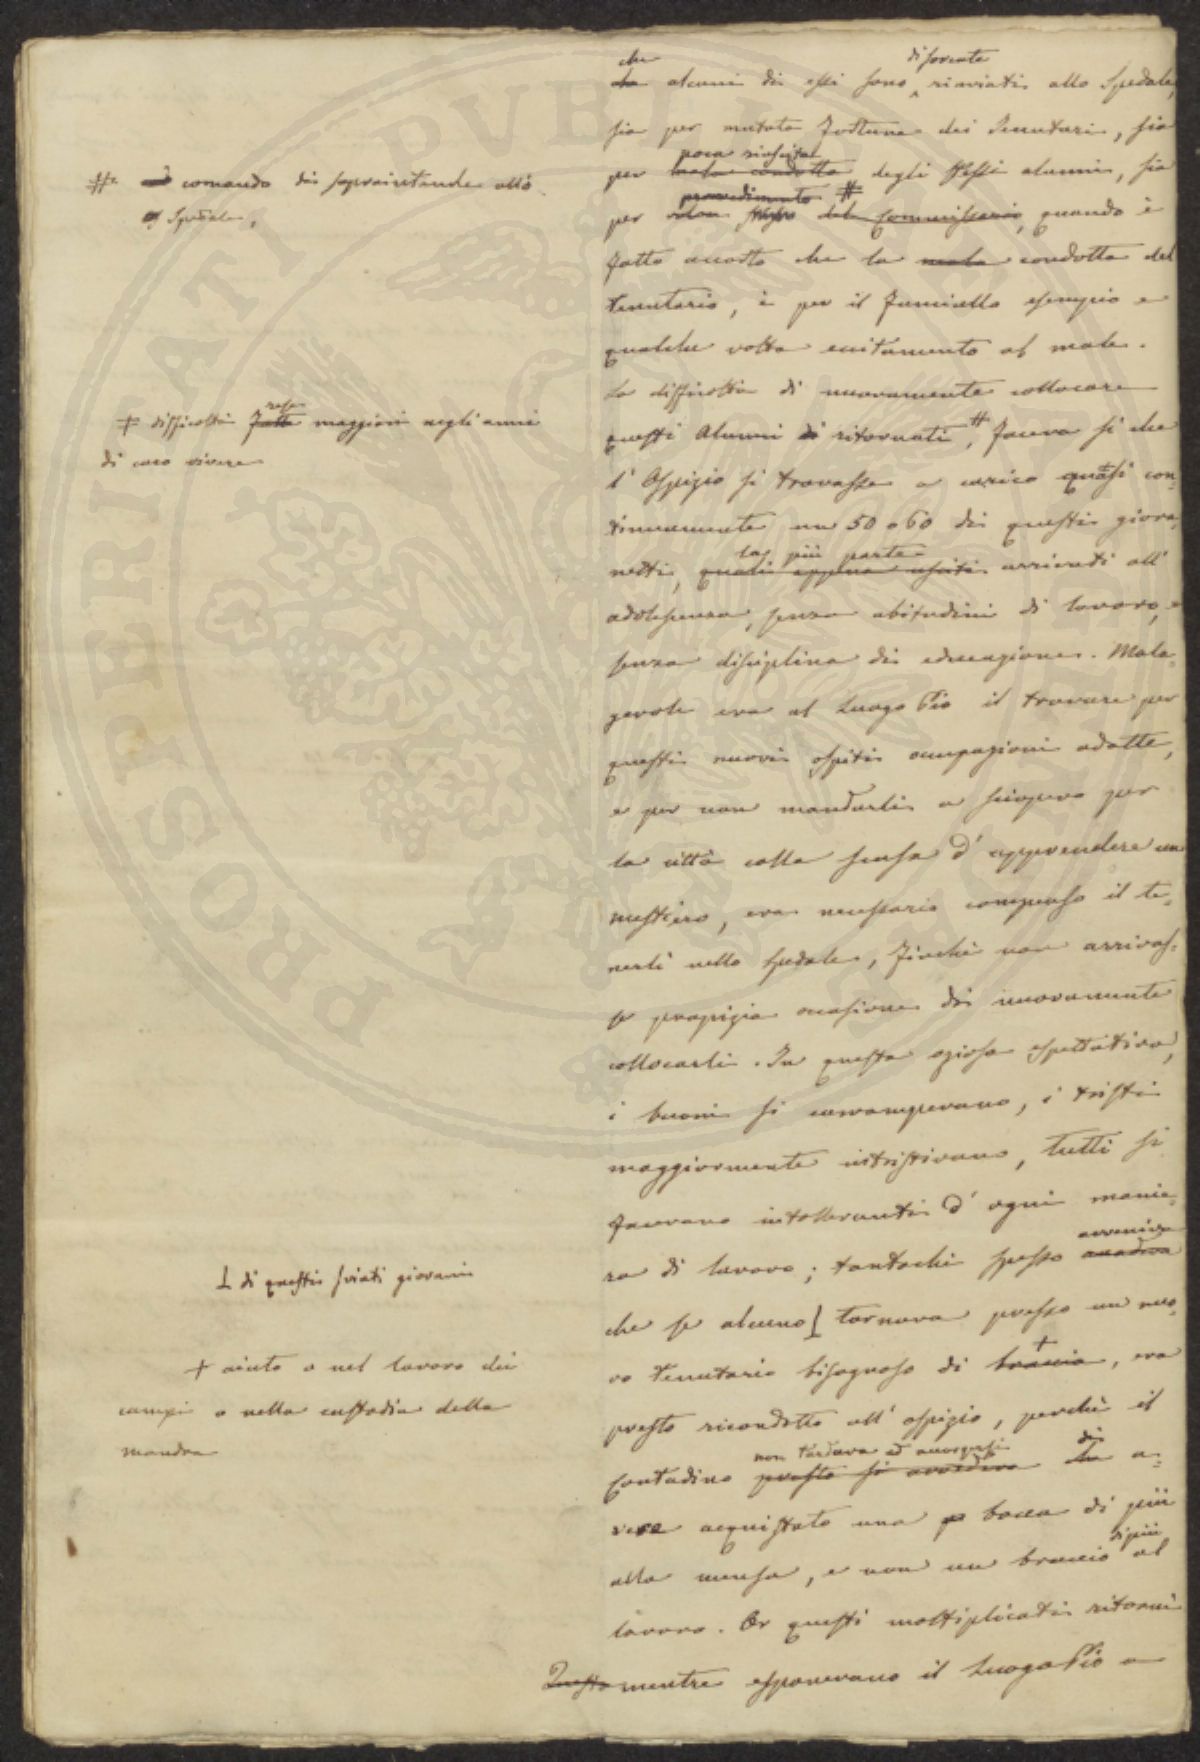 che di sovente
che alcuni di essi sono rinviati allo Spedale,
sia per mutata fortuna dei Tenutari, sia
poca riuscita
per mala condotta degli stessi alunni, sia
provvedimento #
per stesso del Commissario, quando è
fatto accorto che la mala condotta del
tenutario, è per il fanciullo esempio e
qualche volta eccitamento al male.
La difficoltà di nuovamente collocare
questi Alunni di ritornati #, faceva sì che
l'Ospizio si trovasse a carico quasi con-
tinuamente un 50 o 60 di questi giova-
la più parte
netti, quali appena usciti arrivati all'
adolescenza, senza abitudini di lavoro, e
senza disciplina di educazione. Mala-
gevole era al Luogo Pio il trovare per
questi nuovi ospiti occupazioni adatte,
e per non mandarli a sciopero per
la città colla scusa d'apprendere un
mestiero, era necessario compenso il te-
nerli nello Spedale, finchè non arrivas-
se propizia occasione di nuovamente
collocarli. In questa oziosa espettativa,
i buoni si corrompevano, i tristi
maggiormente intristivano, tutti si
facevano intolleranti d'ogni manie-
avveniva
ra di lavoro; tantochè spesso accadeva
che se alcuno ⊥ tornava presso un nuo-
+
vo tenutario bisognoso di braccia, era
presto ricondotto all'ospizio, perchè il
non tardava ad accorgersi di
Contadino presto si avvedeva da a-
vere acquistato una bocca di più
di più
alla mensa, e non un braccio al
lavoro. Or questi moltiplicati ritorni
Questo mentre esponevano il Luogo Pio a
# comando di sopraintende allo
Spedale,
rese
+ difficoltà fatte maggiori negli anni
di caro vivere
⊥ di questi sviati giovani
+ aiuto o nel lavoro dei
campi o nella custodia della
mandra
PROSPERITATI PUBLICAE